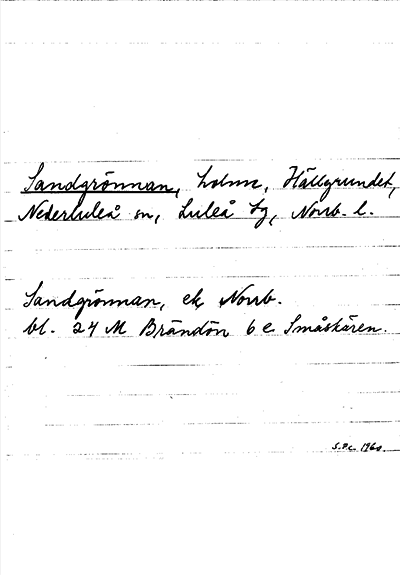 Sandgrönnan, holme, Hällgrundet,
Nederluleå sn, Luleå tg, Norrb. l.
Sandgrönnan, ek, Norrb.
bl. 24 M Brändön 6 e Småskären.
1960.